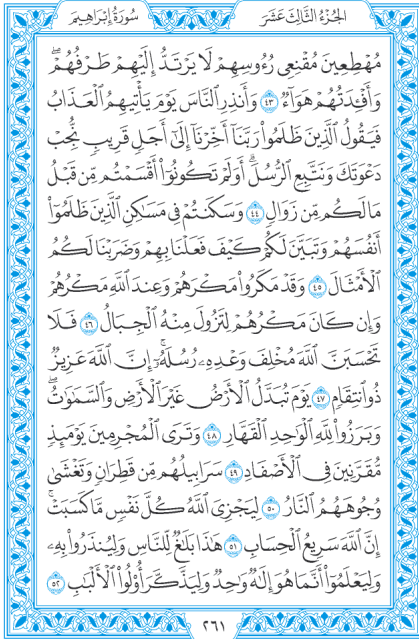 الجُزْءُ الثَّالِثَ عَشَرَ
سُورَةُ إِبْرَاهِيمَ
مُهْطِعِينَ مُقْنِعِي رُءُوسِهِمْ لَا يَرْتَدُّ إِلَيْهِمْ طَرْفُهُمْ ۖ
وَأَفْـِٔدَتُهُمْ هَوَآءٌ ٤٣ وَأَنذِرِ ٱلنَّاسَ يَوْمَ يَأْتِيهِمُ ٱلْعَذَابُ
فَيَقُولُ ٱلَّذِينَ ظَلَمُوا۟ رَبَّنَآ أَخِّرْنَآ إِلَىٰٓ أَجَلٍ قَرِيبٍ نُّجِبْ
دَعْوَتَكَ وَنَتَّبِعِ ٱلرُّسُلَ ۗ أَوَلَمْ تَكُونُوٓا۟ أَقْسَمْتُم مِّن قَبْلُ
مَا لَكُم مِّن زَوَالٍ ٤٤ وَسَكَنتُمْ فِى مَسَـٰكِنِ ٱلَّذِينَ ظَلَمُوٓا۟
أَنفُسَهُمْ وَتَبَيَّنَ لَكُمْ كَيْفَ فَعَلْنَا بِهِمْ وَضَرَبْنَا لَكُمُ
ٱلْأَمْثَالَ ٤٥ وَقَدْ مَكَرُوا۟ مَكْرَهُمْ وَعِندَ ٱللَّهِ مَكْرُهُمْ
وَإِن كَانَ مَكْرُهُمْ لِتَزُولَ مِنْهُ ٱلْجِبَالُ ٤٦ فَلَا
تَحْسَبَنَّ ٱللَّهَ مُخْلِفَ وَعْدِهِۦ رُسُلَهُۥٓ ۗ إِنَّ ٱللَّهَ عَزِيزٌ
ذُو ٱنتِقَامٍ ٤٧ يَوْمَ تُبَدَّلُ ٱلْأَرْضُ غَيْرَ ٱلْأَرْضِ وَٱلسَّمَـٰوَٰتُ ۖ
وَبَرَزُوا۟ لِلَّهِ ٱلْوَٰحِدِ ٱلْقَهَّارِ ٤٨ وَتَرَى ٱلْمُجْرِمِينَ يَوْمَئِذٍ
مُّقَرَّنِينَ فِى ٱلْأَصْفَادِ ٤٩ سَرَابِيلُهُم مِّن قَطِرَانٍ وَتَغْشَىٰ
وُجُوهَهُمُ ٱلنَّارُ ٥٠ لِيَجْزِىَ ٱللَّهُ كُلَّ نَفْسٍ مَّا كَسَبَتْ ۚ
إِنَّ ٱللَّهَ سَرِيعُ ٱلْحِسَابِ ٥١ هَـٰذَا بَلَـٰغٌ لِّلنَّاسِ وَلِيُنذَرُوا۟ بِهِۦ
وَلِيَعْلَمُوٓا۟ أَنَّمَا هُوَ إِلَـٰهٌ وَٰحِدٌ وَلِيَذَّكَّرَ أُو۟لُوا۟ ٱلْأَلْبَـٰبِ ٥٢
٢٦١